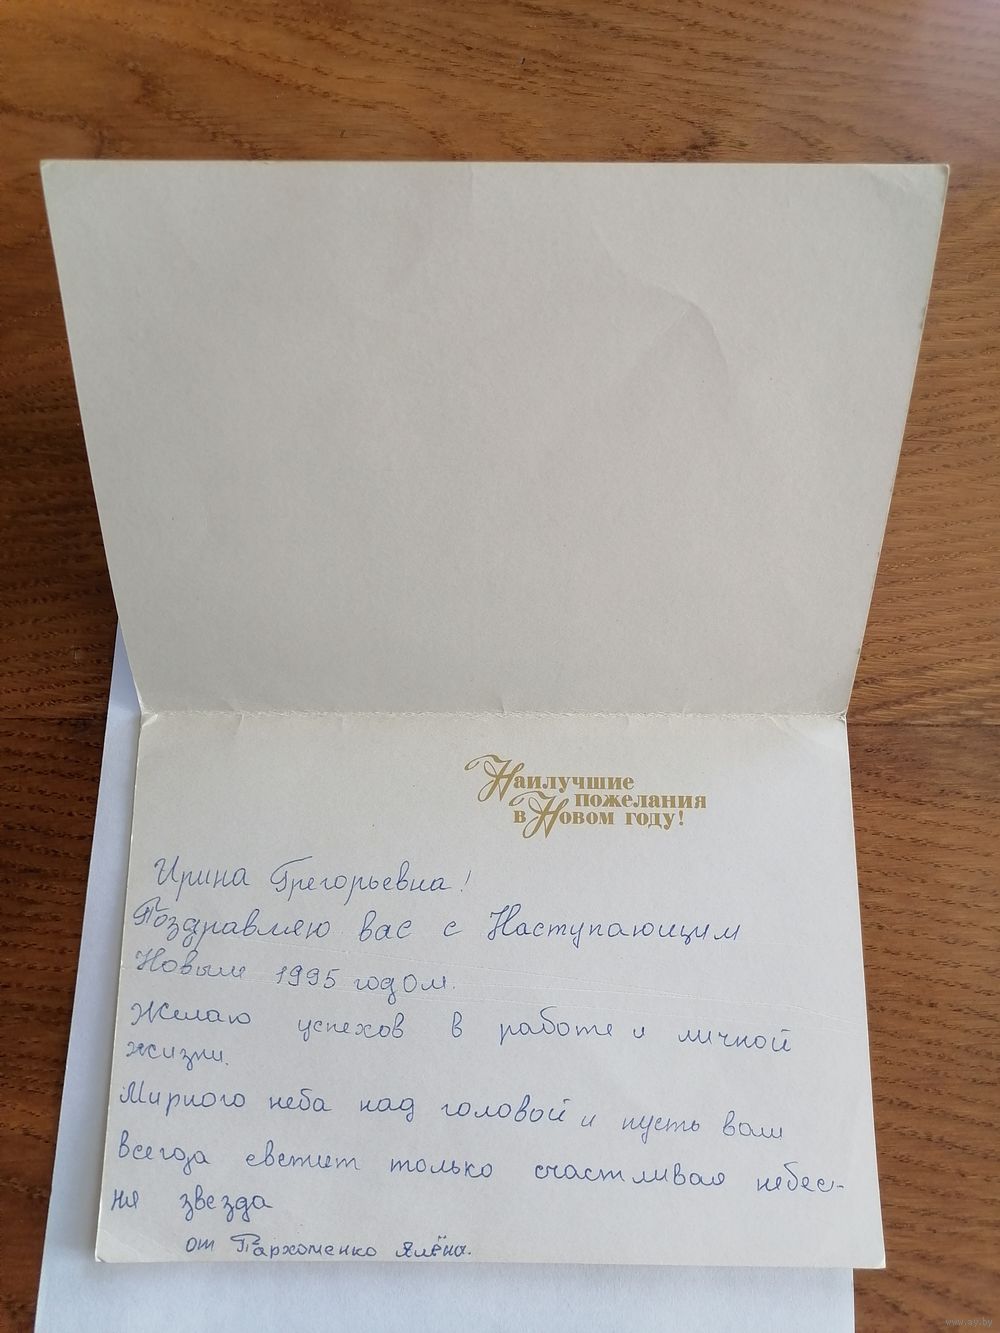 Наилучшие
пожелания
в Новом году!
Ирина Григорьевна!
Поздравляю вас с Наступающим
Новым 1995 годом.
Желаю успехов в работе и личной
жизни.
Мирного неба над головой и пусть вам
всегда светит только счастливая небес-
ня звезда
от Пархоменко Алёна.
www.ay.by